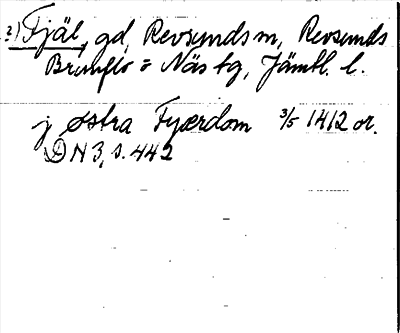 2) Fjäl, gd, Revsunds sn, Revsunds
Brunflo o Näs tg, Jämtl. l.
j østra Fyærdom 3/5 1412 or.
DN 3, s. 442